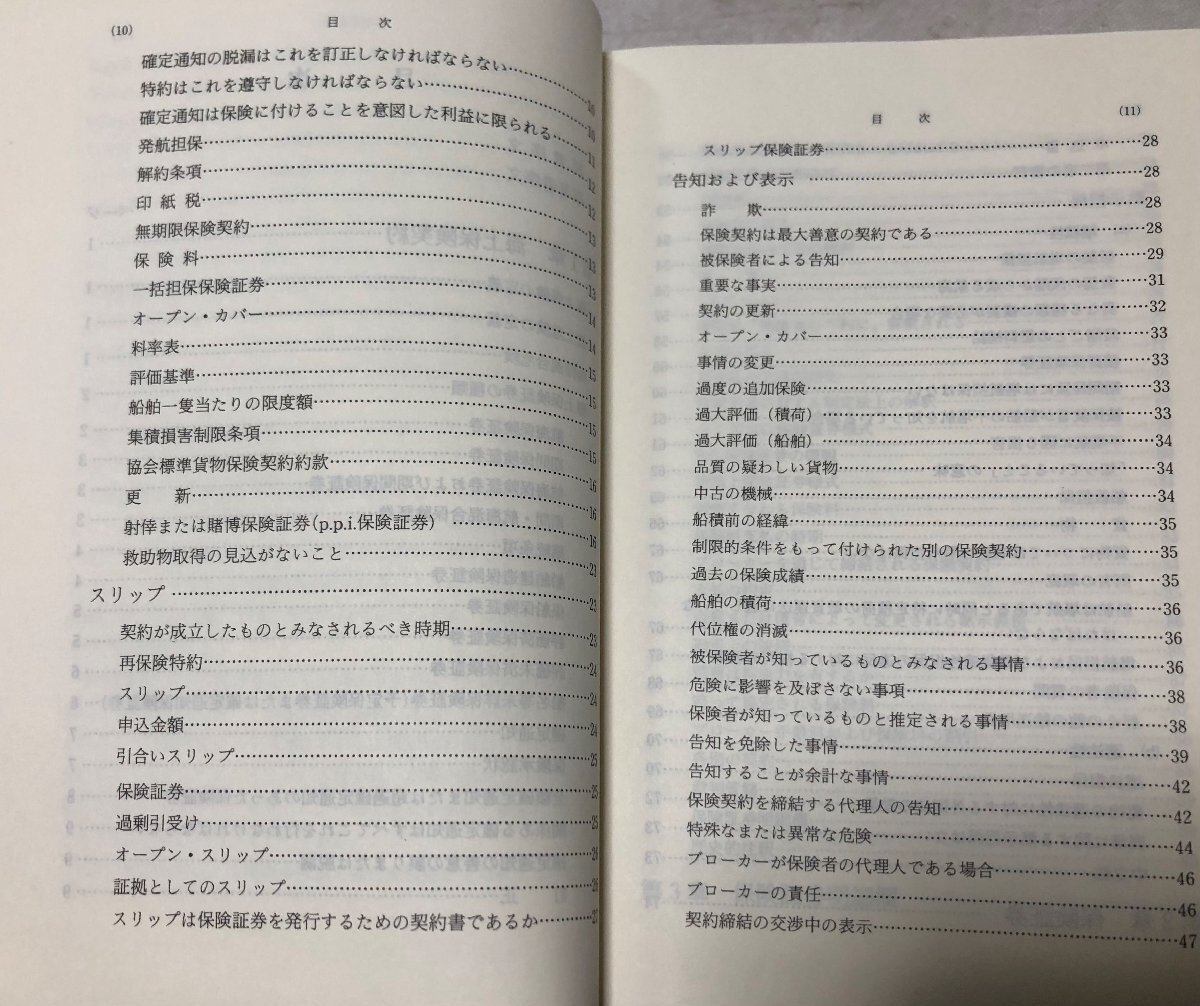 (10) 目 次
確定通知の脱漏はこれを訂正しなければならない……10
特約はこれを遵守しなければならない……10
確定通知は保険に付けることを意図した利益に限られる……11
発航担保……12
解約条項……12
印紙税……13
無期限保険契約……13
保険料……13
一括担保保険証券……14
オープン・カバー……14
料率表……15
評価基準……15
船舶一隻当たりの限度額……15
集積損害制限条項……15
協会標準貨物保険契約約款……16
更 新……16
射倖または賭博保険証券(p.p.i.保険証券)……16
救助物取得の見込がないこと……23
スリップ……23
契約が成立したものとみなされるべき時期……23
再保険特約……24
スリップ……24
申込金額……24
引合いスリップ……25
保険証券……25
過剰引受け……25
オープン・スリップ……26
証拠としてのスリップ……26
スリップは保険証券を発行するための契約書であるか……27
目 次 (11)
スリップ保険証券……28
告知および表示……28
詐 欺……28
保険契約は最大善意の契約である……28
被保険者による告知……29
重要な事実……31
契約の更新……32
オープン・カバー……33
事情の変更……33
過度の追加保険……33
過大評価(積荷)……33
過大評価(船舶)……34
品質の疑わしい貨物……34
中古の機械……34
船積前の経緯……35
制限的条件をもって付けられた別の保険契約……35
過去の保険成績……35
船舶の積荷……36
代位権の消滅……36
被保険者が知っているものとみなされる事情……36
危険に影響を及ぼさない事項……38
保険者が知っているものと推定される事情……38
告知を免除した事情……39
告知することが余計な事情……42
保険契約を締結する代理人の告知……42
特殊なまたは異常な危険……44
ブローカーが保険者の代理人である場合……46
ブローカーの責任……46
契約締結の交渉中の表示……47